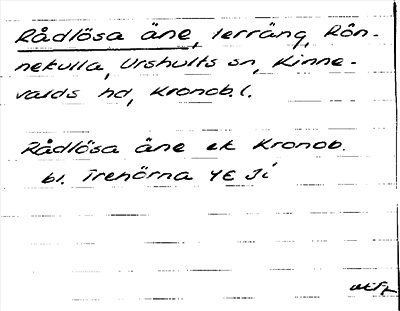 Rådlösa äne, terräng, Rön-
nekulla, Urshults sn, Kinne-
valds hd, Kronob.l.
Rådlösa äne ek Kronob.
bl. Trehörna 4E 3i